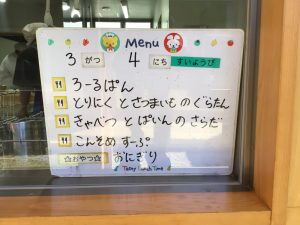 Menu
3 がつ 4 にち すいようび
ろーるぱん
とりにく と さつまいも の ぐらたん
きゃべつ と ぱいん の さらだ
こんそめ すーぷ
☆おやつ☆ おにぎり
Tasty Lunch Time